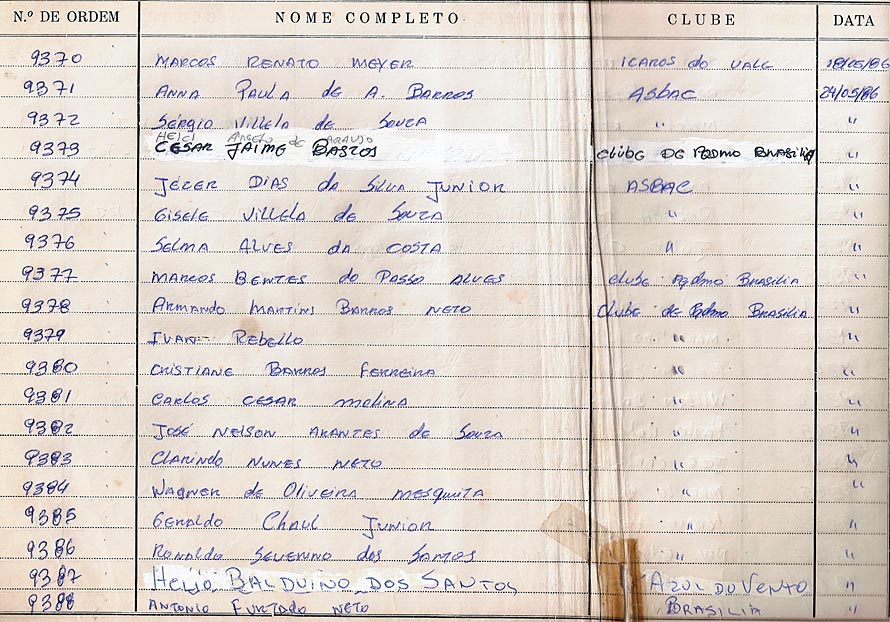 N.º DE ORDEM NOME COMPLETO CLUBE DATA
9370 MARCOS RENATO MEYER ICAROS do VALE
9371 ANNA PAULA de A. BARROS ASBAC 24/05/86
9372 SÉRGIO VILLELA de SOUZA " "
ARAUJO
9373 CESAR JAIME de BASTOS clube DE PQDMO BRASILIA "
9374 JÉZER DIAS da SILVA JUNIOR ASBAC "
9375 GISELE VILLELA de SOUZA " "
9376 SELMA ALVES DA COSTA " "
9377 MARCOS BENTES do PASSO ALVES clube PQDMO BRASILIA "
9378 ARMANDO MARTINS BARROS NETO CLUBE de PQDMO BRASILIA "
9379 REBELLO " "
9380 CRISTIANE BARROS FERREIRA " "
9381 CARLOS CESAR MOLINA " "
9382 JOSÉ NELSON ARANTES de SOUZA " "
9383 CLARINDO NUNES NETO " "
9384 WAGNER de OLIVEIRA MESQUITA " "
9385 GERALDO CHAUL JUNIOR " "
9386 RONALDO SEVERINO dos SANTOS " "
9387 HELIO BALDUINO DOS SANTOS AZUL DO VENTO "
9388 ANTONIO FURTADO NETO BRASILIA "